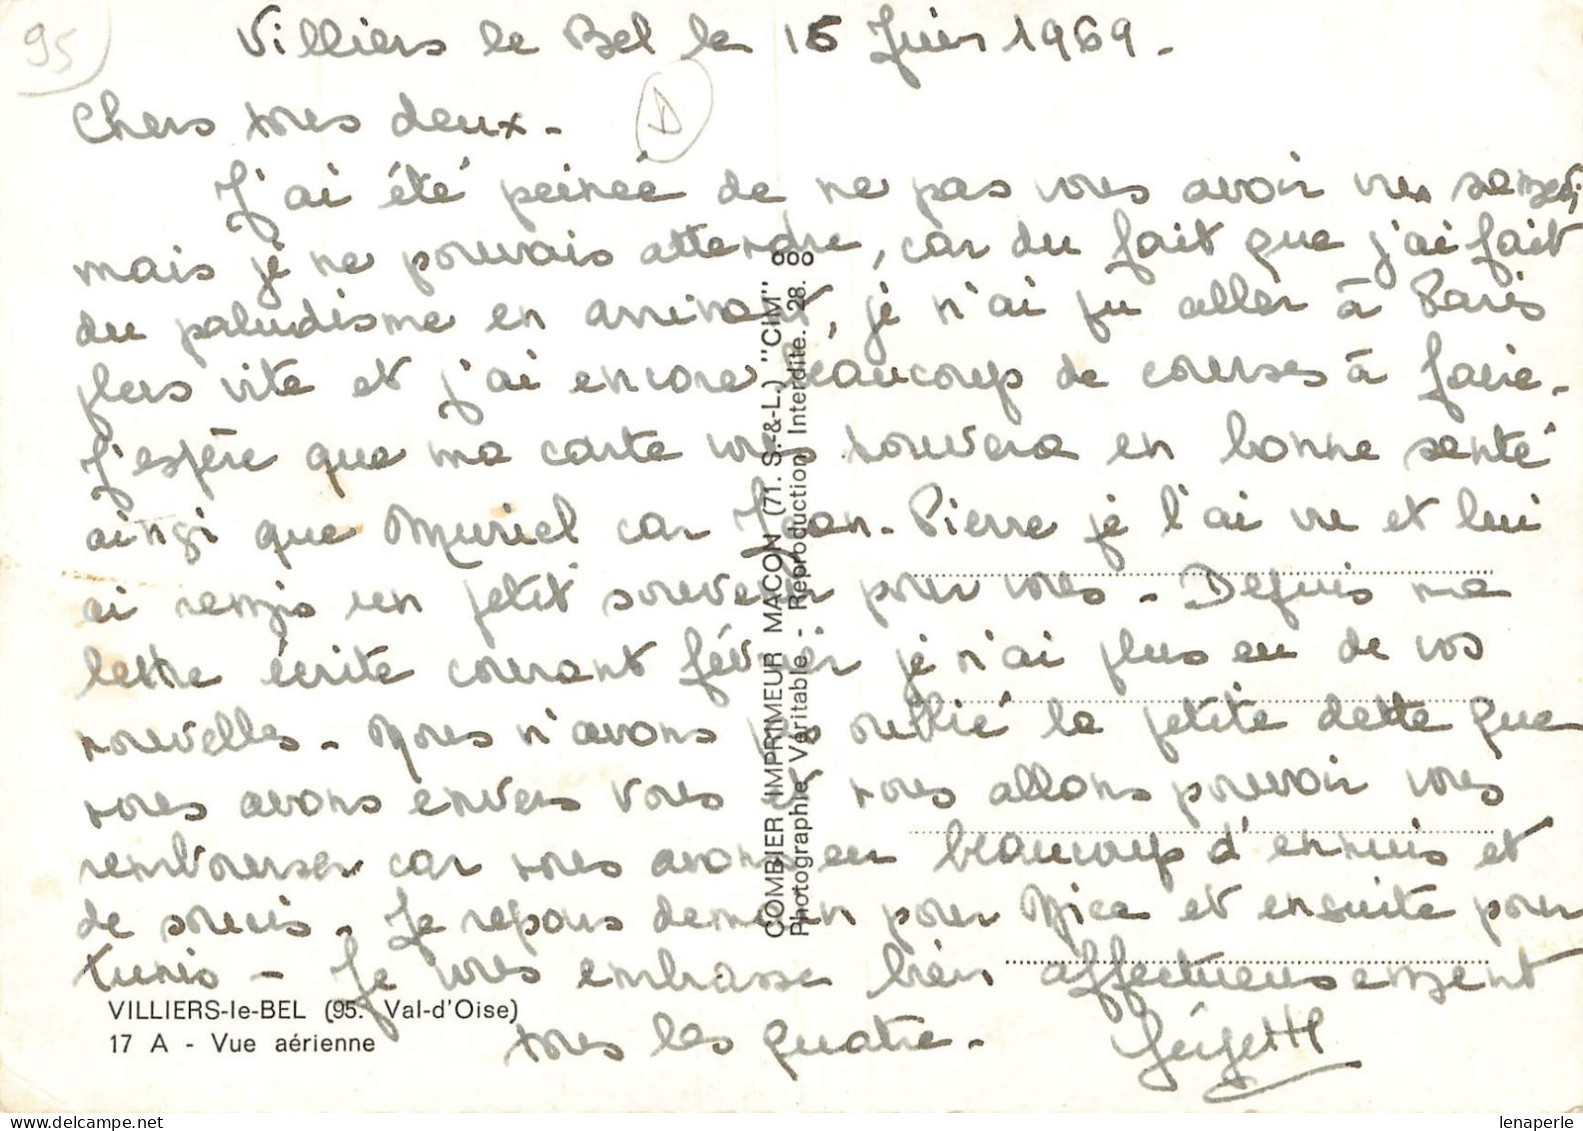 95
Villiers le Bel le 15 Juin 1969.
Chers tous deux.
D
J'ai été peinée de ne pas vous avoir vus samedi
mais je ne pouvais attendre, car du fait que j'ai fait
du paludisme en arrivant, je n'ai pu aller à Paris
plus vite et j'ai encore beaucoup de courses à faire.
J'espère que ma carte vous trouvera en bonne santé
ainsi que Muriel car Jean-Pierre je l'ai vu et lui
ai remis un petit souvenir pour vous. Depuis ma
lettre écrite courant février je n'ai plus eu de vos
nouvelles. Nous n'avons pas oublié la petite dette que
nous avons envers vous et nous allons pouvoir vous
rembourser car nous avons eu beaucoup d'ennuis et
de soucis. Je repars demain pour Nice et ensuite pour
Tunis - Je vous embrasse bien affectueusement
tous les quatre.
COMBIER IMPRIMEUR MACON (71. S.-&-L.) "CIM"
Photographie Véritable - Reproduction Interdite. 28.
VILLIERS-le-BEL (95. Val-d'Oise)
17 A - Vue aérienne
lenaperle